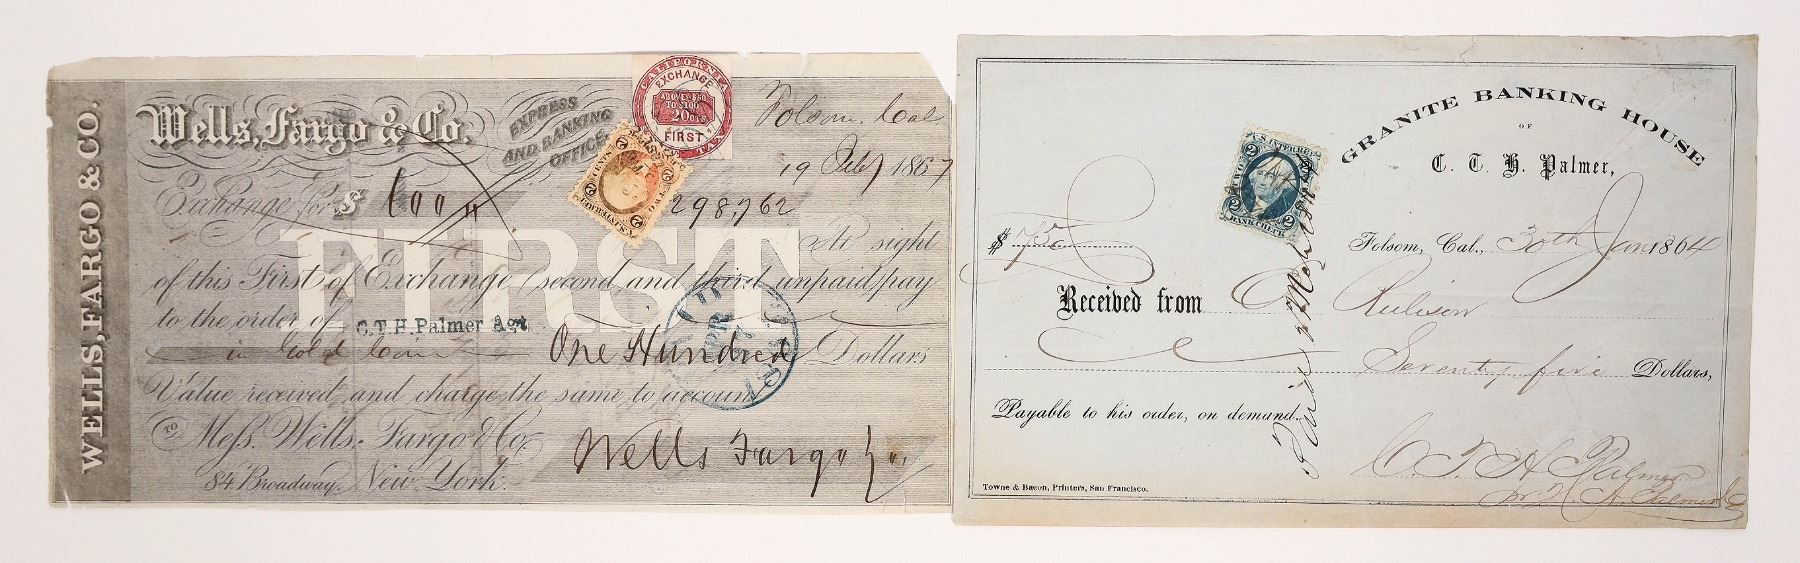 WELLS, FARGO & CO.
Wells, Fargo & Co.
EXPRESS
AND BANKING
OFFICE.
CALIFORNIA
EXCHANGE
ABOVE $50
TO $100
20 CTS
FIRST
TAX
Folsom, Cal
19 Feby 1867
Exchange for $ 100
298,762
FIRST
At sight
of this First of Exchange (second and third unpaid) pay
to the order of C.T.H. Palmer Agt
in Gold Coin One Hundred Dollars
Value received, and charge the same to account
TO Mess. Wells, Fargo & Co.
84 Broadway, New York.
Wells Fargo & Co.
GRANITE BANKING HOUSE
OF
C. T. H. Palmer,
U.S. INTER. REV.
2 2
BANK CHECK
$ 75
Folsom, Cal., 30th Jan 1864
Received from Rulison
Seventy five Dollars,
Payable to his order, on demand.
C T H Palmer
Towne & Bacon, Printers, San Francisco.